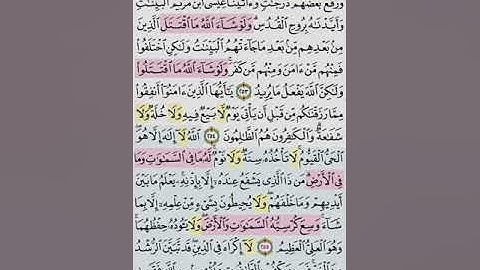 ورفع بعضهم درجت وءاتينا عيسى ابن مريم البينت
وأيدنه بروح القدس ولو شاء الله ما اقتتل الذين
من بعدهم من بعد ما جاءتهم البينت ولكن اختلفوا
فمنهم من ءامن ومنهم من كفر ولو شاء الله ما اقتتلوا
ولكن الله يفعل ما يريد ٢٥٣ يأيها الذين ءامنوا أنفقوا
مما رزقنكم من قبل أن يأتي يوم لا بيع فيه ولا خلة ولا
شفعة والكفرون هم الظلمون ٢٥٤ الله لا إله إلا هو
الحي القيوم لا تأخذه سنة ولا نوم له ما في السموت وما
في الأرض من ذا الذي يشفع عنده إلا بإذنه يعلم ما بين
أيديهم وما خلفهم ولا يحيطون بشيء من علمه إلا بما
شاء وسع كرسيه السموت والأرض ولا يئوده حفظهما
وهو العلي العظيم ٢٥٥ لا إكراه في الدين قد تبين الرشد